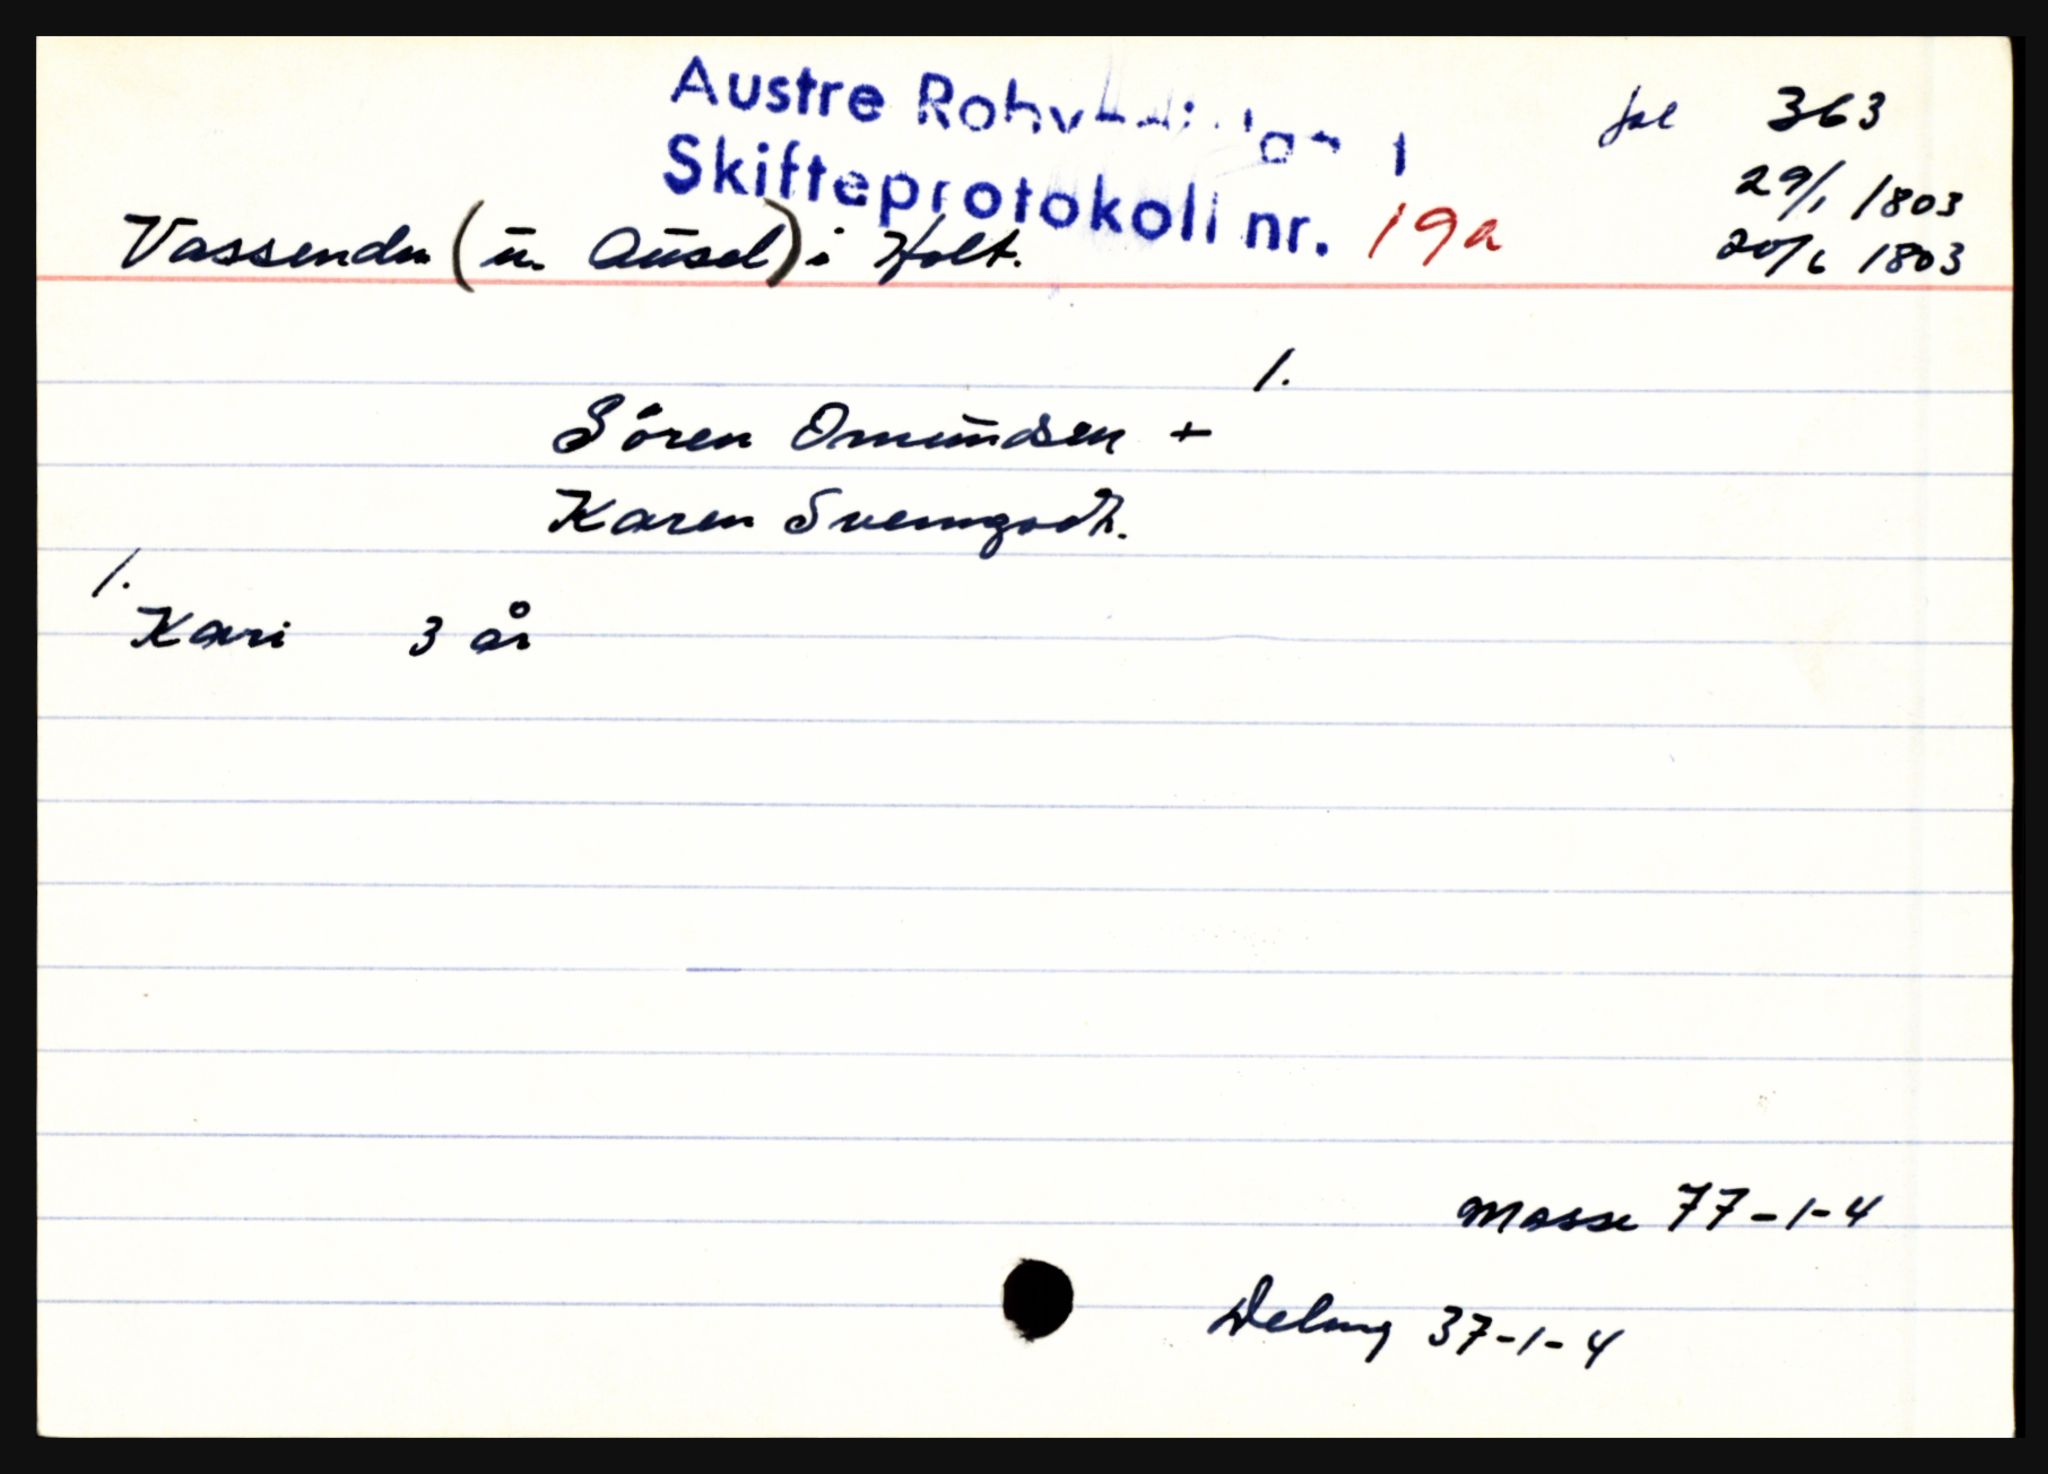 Austre Rohy
Skifteprotokoll nr. 19a
fol 363
29/1 1803
20/6 1803
Vassenden (u. Ausel) i Holt.
1.
Sören Omundsen +
Karen Svenngsdt.
1.
Kari 3 år
Masse 77-1-4
Delung 37-1-4